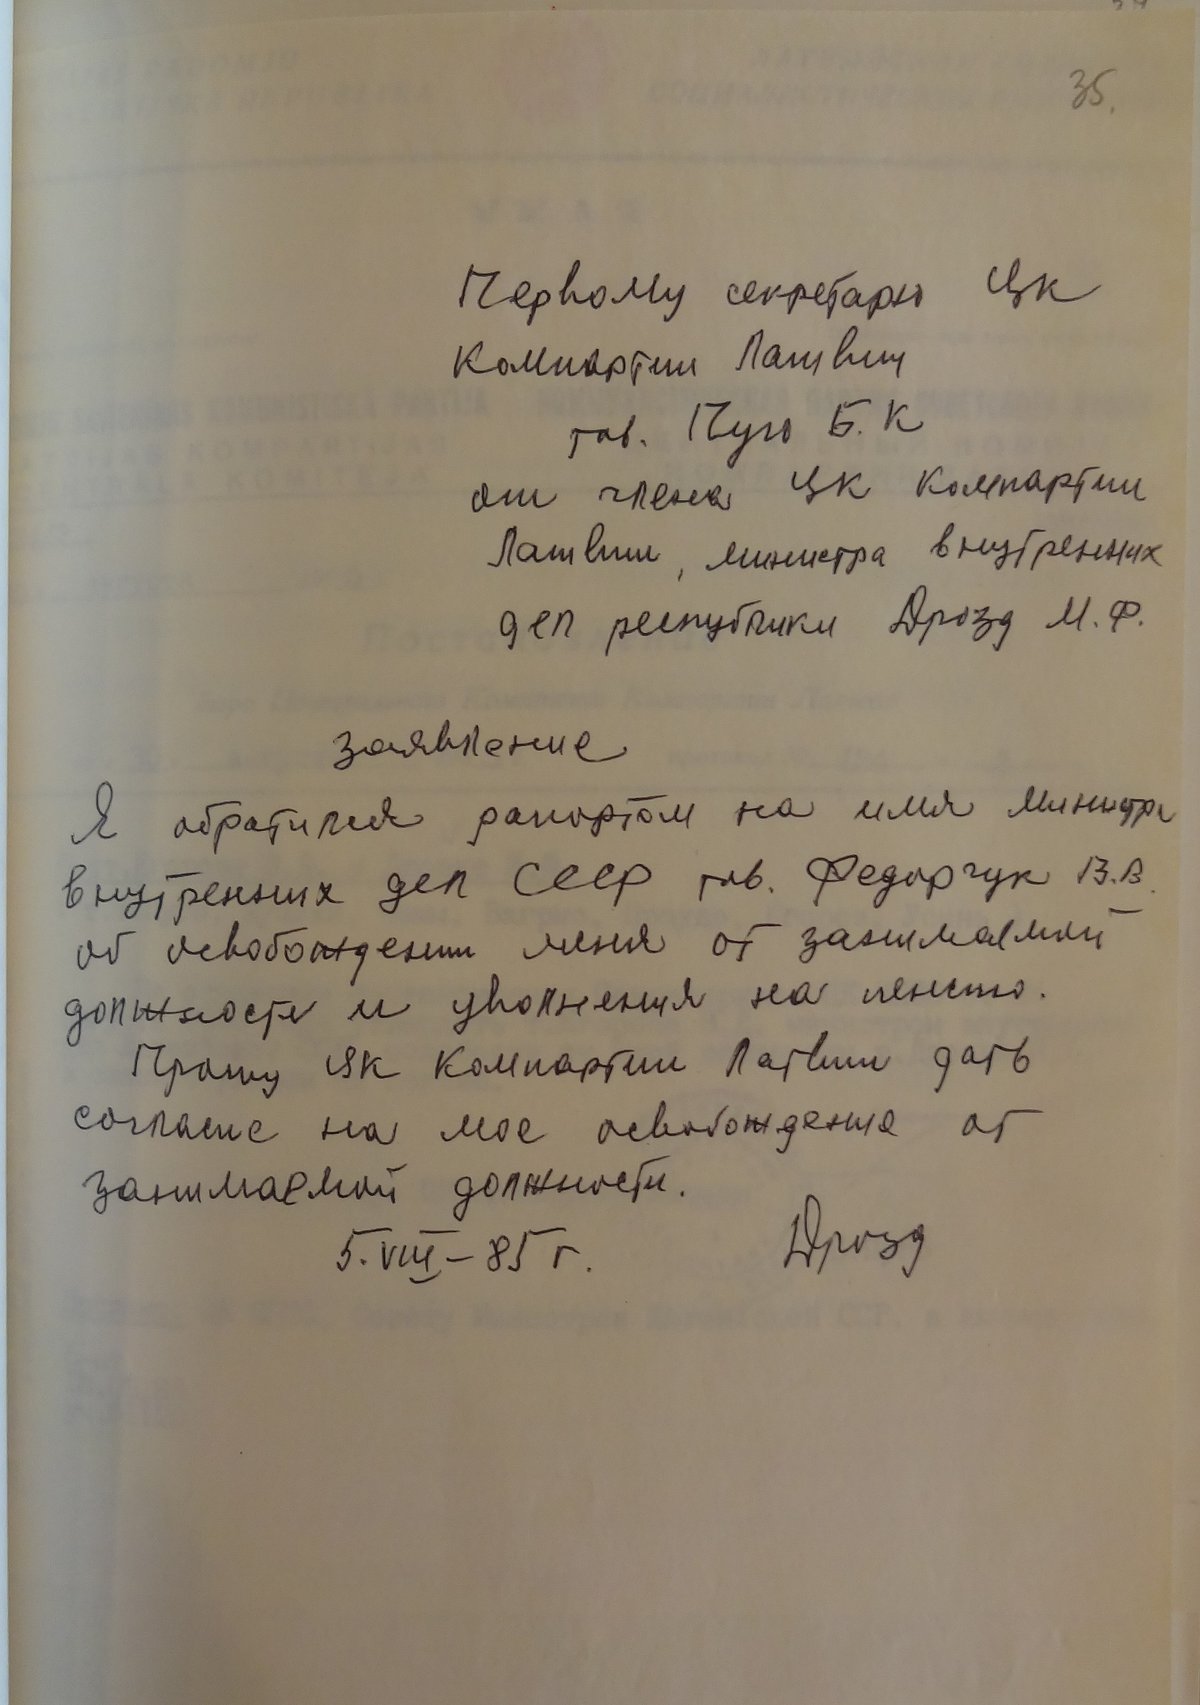 35.
Первому секретарю ЦК
Компартии Латвии
тов. Пуго Б.К
от члена ЦК Компартии
Латвии, министра внутренних
дел республики Дрозд М.Ф.
заявление
Я обратился рапортом на имя министра
внутренних дел СССР тов. Федорчук В.В.
об освобождении меня от занимаемой
должности и увольнения на пенсию.
Прошу ЦК Компартии Латвии дать
согласие на мое освобождение от
занимаемой должности.
5.VIII-85 г. Дрозд